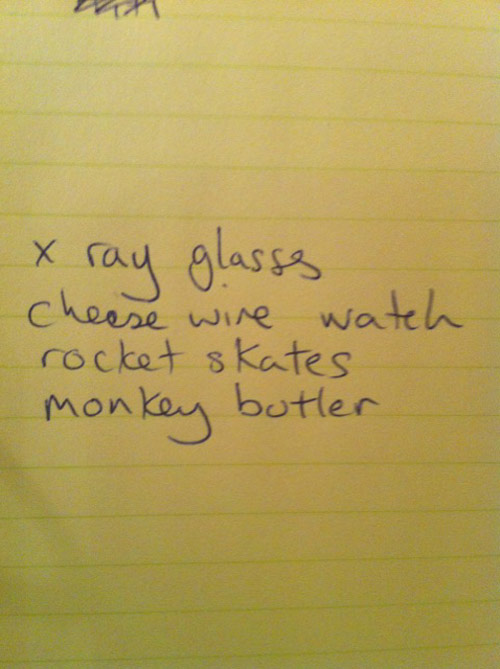 x ray glasses
cheese wire watch
rocket skates
monkey butler